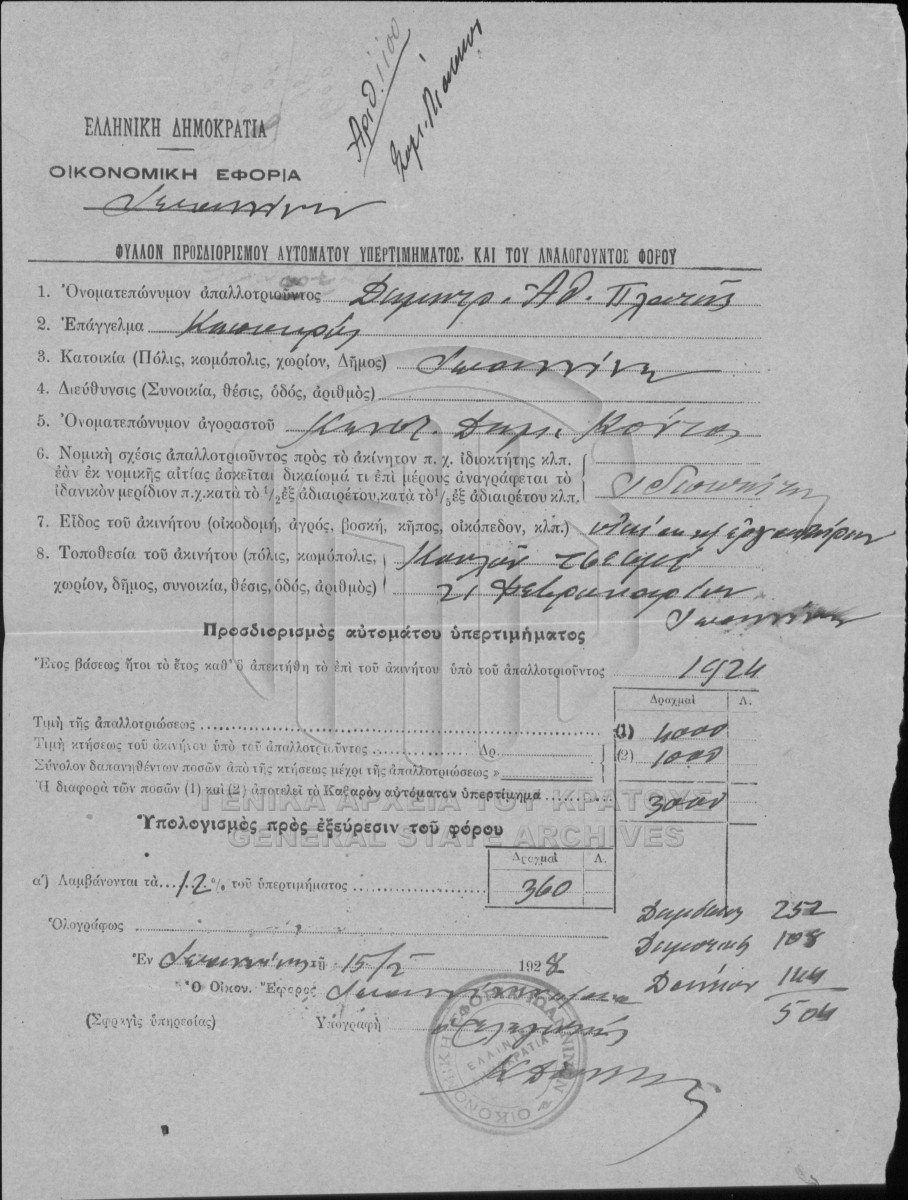 Αριθ. 1100
ΕΛΛΗΝΙΚΗ ΔΗΜΟΚΡΑΤΙΑ
ΟΙΚΟΝΟΜΙΚΗ ΕΦΟΡΙΑ
Ιωαννίνων
ΦΥΛΛΟΝ ΠΡΟΣΔΙΟΡΙΣΜΟΥ ΑΥΤΟΜΑΤΟΥ ΥΠΕΡΤΙΜΗΜΑΤΟΣ, ΚΑΙ ΤΟΥ ΑΝΑΛΟΓΟΥΝΤΟΣ ΦΟΡΟΥ
1. Ὀνοματεπώνυμον ἀπαλλοτριοῦντος Δημητρ. Αθ.
2. Ἐπάγγελμα
3. Κατοικία (Πόλις, κωμόπολις, χωρίον, Δῆμος) Ιωαννίνων
4. Διεύθυνσις (Συνοικία, θέσις, ὁδός, ἀριθμὸς)
5. Ὀνοματεπώνυμον ἀγοραστοῦ Κωνστ. Δημ.
6. Νομικὴ σχέσις ἀπαλλοτριοῦντος πρὸς τὸ ἀκίνητον π. χ. ἰδιοκτήτης κλπ.
ἐὰν ἐκ νομικῆς αἰτίας ἀσκεῖται δικαίωμά τι ἐπὶ μέρους ἀναγράφεται τὸ
ἰδανικὸν μερίδιον π.χ. κατὰ τὸ 1/2 ἐξ ἀδιαιρέτου, κατὰ τὸ 1/5 ἐξ ἀδιαιρέτου κλπ. Ιδιοκτήτης
7. Εἶδος τοῦ ἀκινήτου (οἰκοδομή, ἀγρός, βοσκή, κῆπος, οἰκόπεδον, κλπ.) εργαστηρίου
8. Τοποθεσία τοῦ ἀκινήτου (πόλις, κωμόπολις,
χωρίον, δῆμος, συνοικία, θέσις, ὁδός, ἀριθμὸς) 21 Φεβρουαρίου
Ιωαννίνων
Προσδιορισμὸς αὐτομάτου ὑπερτιμήματος
Ἔτος βάσεως ἤτοι τὸ ἔτος καθ' ὃ ἀπεκτήθη τὸ ἐπὶ τοῦ ἀκινήτου ὑπὸ τοῦ ἀπαλλοτριοῦντος 1924
Δραχμαὶ Λ.
Τιμὴ τῆς ἀπαλλοτριώσεως (1) 4000
Τιμὴ κτήσεως τοῦ ἀκινήτου ὑπὸ τοῦ ἀπαλλοτριοῦντος Δρ. (2) 1000
Σύνολον δαπανηθέντων ποσῶν ἀπὸ τῆς κτήσεως μέχρι τῆς ἀπαλλοτριώσεως »
Ἡ διαφορὰ τῶν ποσῶν (1) καὶ (2) ἀποτελεῖ τὸ Καθαρὸν αὐτόματον ὑπερτίμημα 3000
ΓΕΝΙΚΑ ΑΡΧΕΙΑ ΤΟΥ ΚΡΑΤΟΥΣ
GENERAL STATE ARCHIVES
Ὑπολογισμὸς πρὸς ἐξεύρεσιν τοῦ φόρου
Δραχμαὶ Λ.
α') Λαμβάνονται τὰ 12 % τοῦ ὑπερτιμήματος 360
Ὁλογράφως
252
108
144
504
Ἐν Ιωαννίνοις τῇ 15/2 1928
Ὁ Οἰκον. Ἔφορος Ιωαννίνων
(Σφραγὶς ὑπηρεσίας) Ὑπογραφὴ
ΟΙΚΟΝΟΜΙΚΗ ΕΦΟΡΙΑ ΙΩΑΝΝΙΝΩΝ
ΕΛΛΗΝΙΚΗ
ΔΗΜΟΚΡΑΤΙΑ